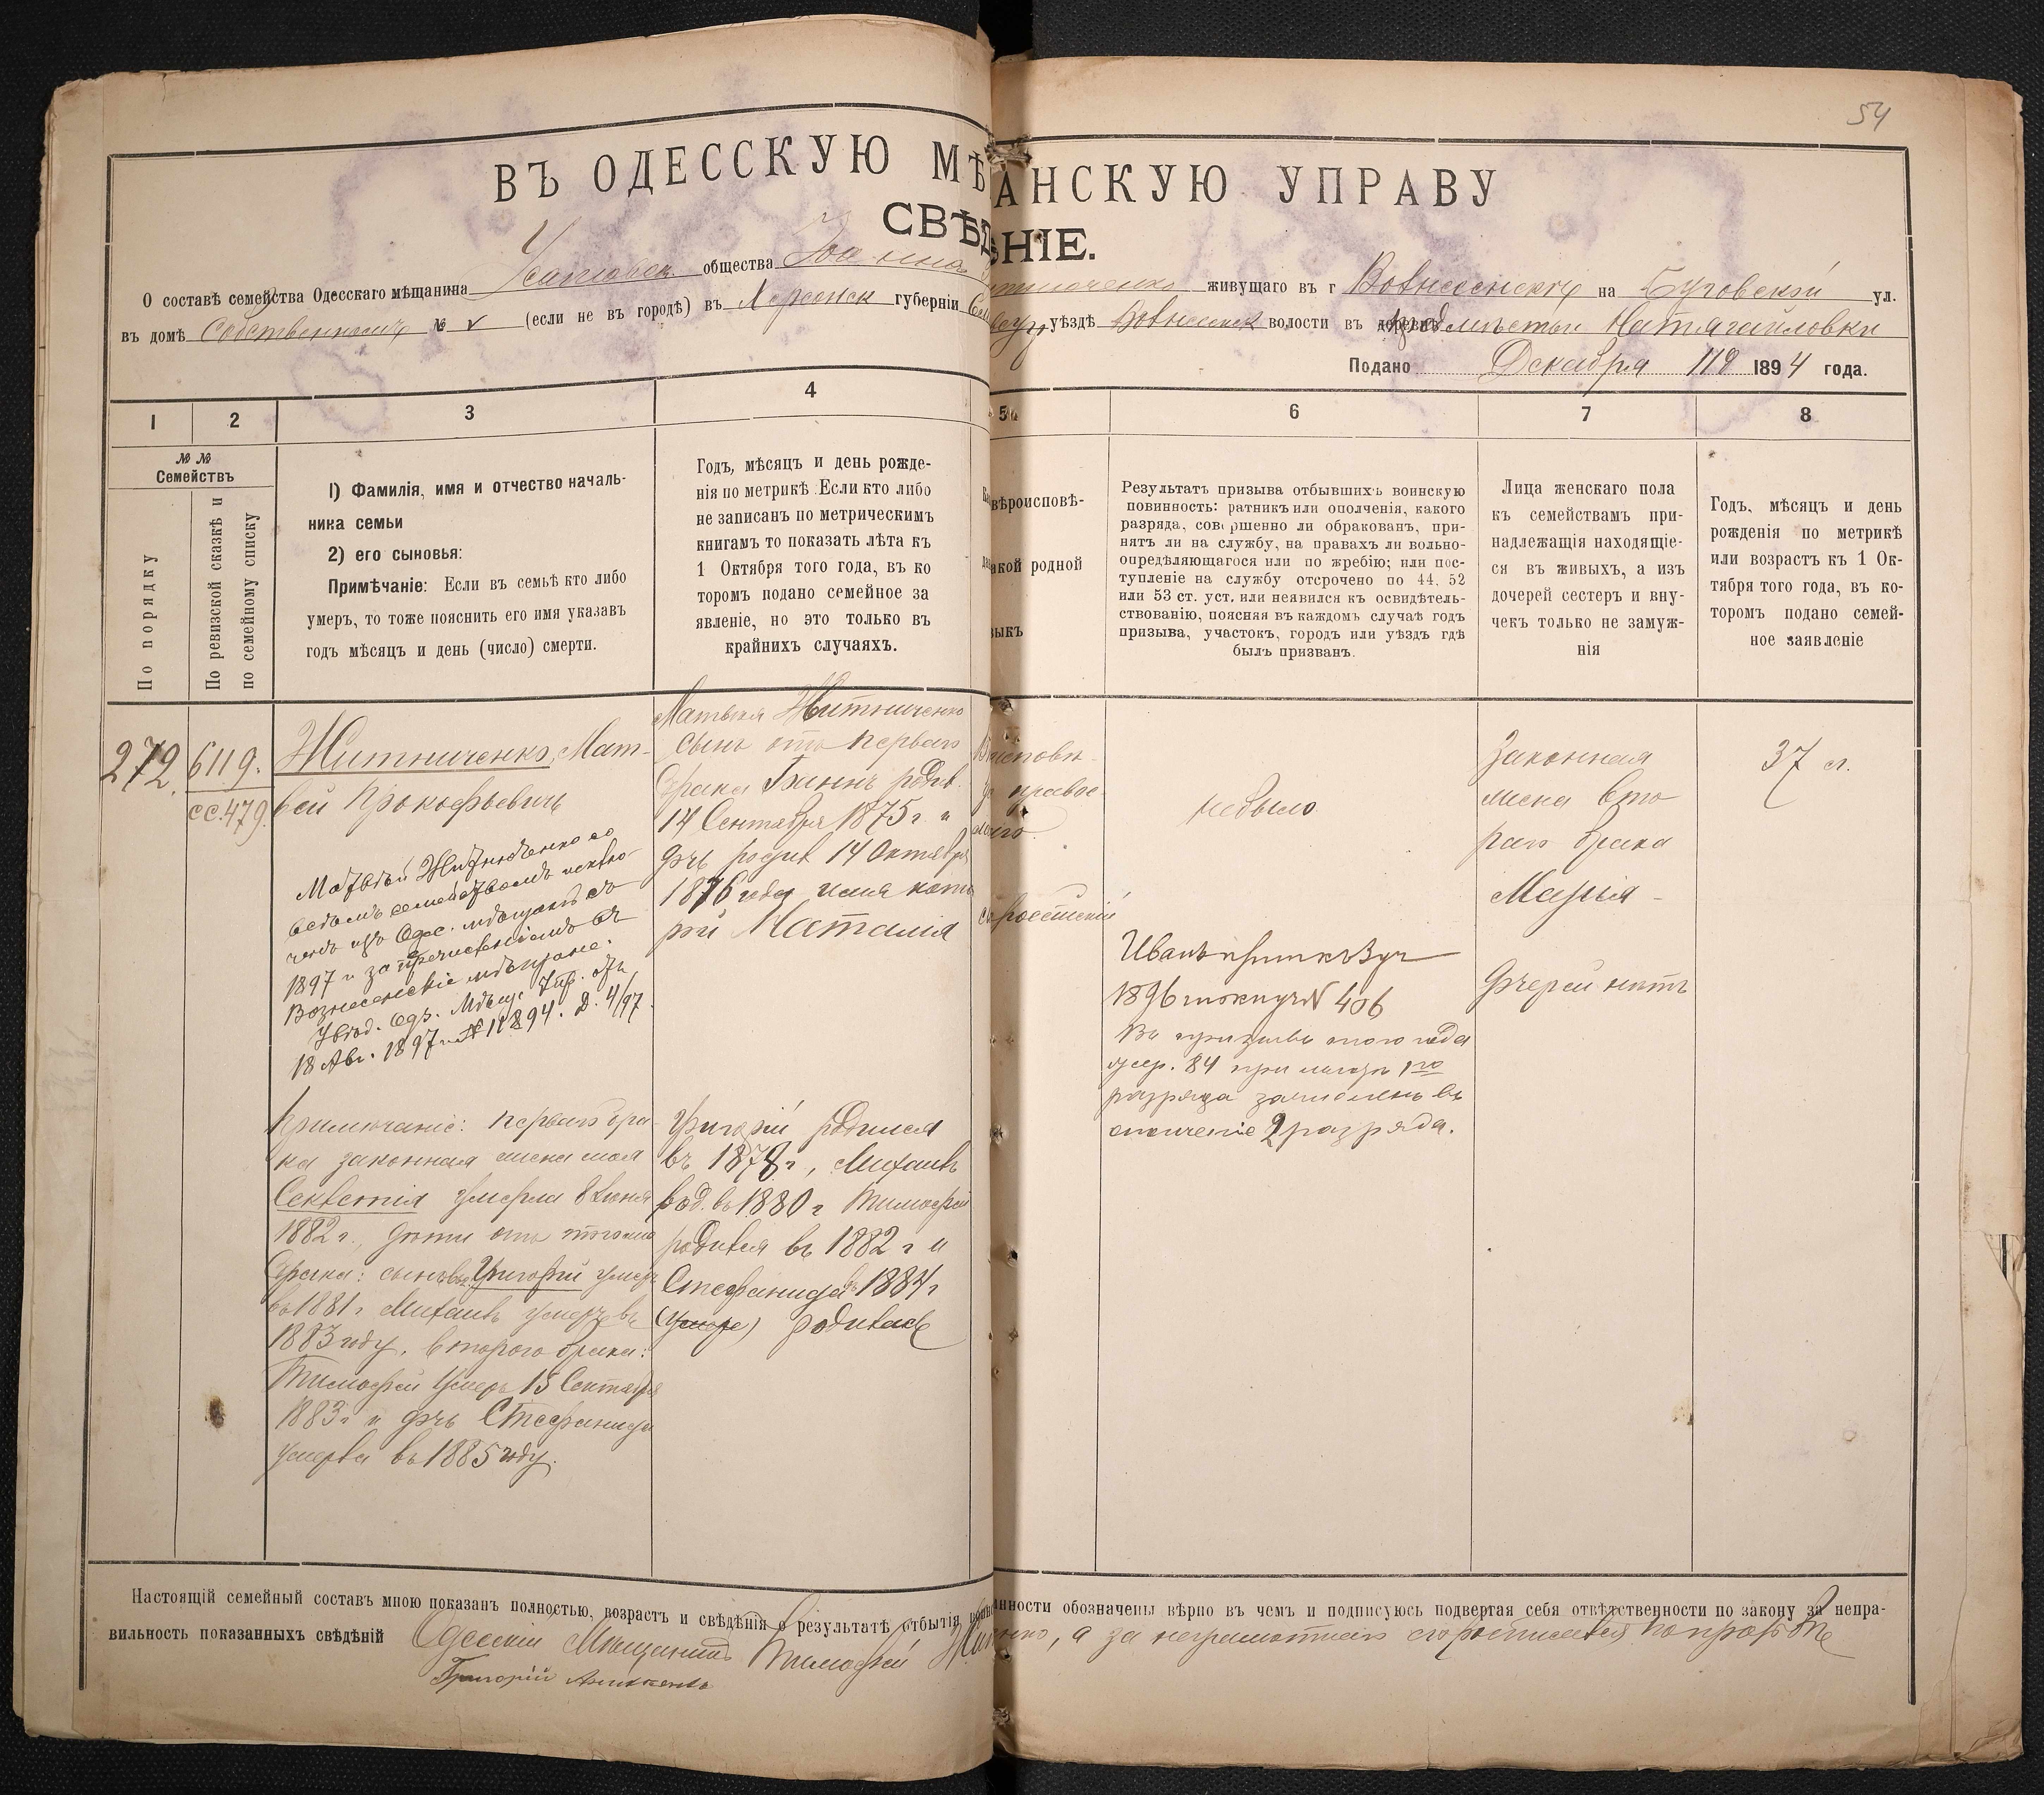 54
ВЪ ОДЕССКУЮ МѢ АНСКУЮ УПРАВУ
СВѢДѢНІЕ.
О составѣ семейства Одесскаго мѣщанина общества живущаго въ г Вознесенску на Буговской ул.
въ домѣ Собственномъ № (если не въ городѣ) въ Херсонск губерніи уѣздѣ Вознесенск волости въ деревнѣ предмѣстьи Натягайловки
Подано Декабря 1894 года.
1 2 3 4 5 6 7 8
№ №
Семействъ
По порядку
По ревизской сказкѣ и
по семейному списку
1) Фамилія, имя и отчество началь-
ника семьи
2) его сыновья:
Примѣчаніе: Если въ семьѣ кто либо
умеръ, то тоже пояснить его имя указавъ
годъ мѣсяцъ и день (число) смерти.
Годъ, мѣсяцъ и день рожде-
нія по метрикѣ Если кто либо
не записанъ по метрическимъ
книгамъ то показать лѣта къ
1 Октября того года, въ ко
торомъ подано семейное за
явленіе, но это только въ
крайнихъ случаяхъ.
вѣроисповѣ-
акой родной
зыкъ
Результатъ призыва отбывшихъ воинскую
повинность: ратникъ или ополченія, какого
разряда, совершенно ли обракованъ, при-
нятъ ли на службу, на правахъ ли вольно-
опредѣляющагося или по жребію; или пос-
тупленіе на службу отсрочено по 44. 52
или 53 ст. уст. или неявился къ освидѣтель-
ствованію, поясняя въ каждомъ случаѣ годъ
призыва, участокъ, городъ или уѣздъ гдѣ
былъ призванъ.
Лица женскаго пола
къ семействамъ при-
надлежащія находящіе-
ся въ живыхъ, а изъ
дочерей сестеръ и вну-
чекъ только не замуж-
нія
Годъ, мѣсяцъ и день
рожденія по метрикѣ
или возрастъ къ 1 Ок-
тября того года, въ ко-
торомъ подано семей-
ное заявленіе
272. 6119.
сс. 479.
Житниченко, Мат-
вей Прокофьевичъ
Матвѣй Житниченко со
всѣмъ семействомъ исклю-
ченъ изъ Одес. мѣщанъ съ
1897 г за пречисленіемъ въ
Вознесенскіе мѣщане.
Увѣд. Одз. Мѣщ. Упр. отъ
18 Авг. 1897 г № 11894. Д. 4/97.
Примѣчаніе: перваго бра-
ка законная жена моя
Секлетія умерла 8 Іюня
1882 г., дѣти отъ того же
брака: сыновья Григорій умеръ
въ 1881 г Михаилъ умеръ въ
1883 году, второго брака:
Тимофей умеръ 15 Сентября
1883 г и дочь Стефанида
умерла въ 1885 году.
Матвея Житниченко
сынъ отъ перваго
брака родив.
14 Сентября 1875 г и
дочь родив 14 Октября
1876 года имя кото
рой Наталия
Григорій родился
въ 1878 г, Михаилъ
род. въ 1880 г Тимофей
родился въ 1882 г и
Стефанида въ 1884 г
родилась
небыло
Иванъ
1896 406
Въ призывъ сего года
жер. 84 при льготѣ 1го
разряда зачисленъ въ
ополченіе 2 разряда.
Законная
жена вто
раго брака
Марыя -
дочерей нетъ
37 л.
Настоящій семейный составъ мною показанъ полностью, возрастъ и свѣдѣнія о результатѣ отбытія нности обозначены вѣрно въ чемъ и подписуюсь подвергая себя отвѣтственности по закону за непра-
вильность показанныхъ свѣдѣній Одесскій Мещанинъ Тимофей а за неграмотнаго
Григорій